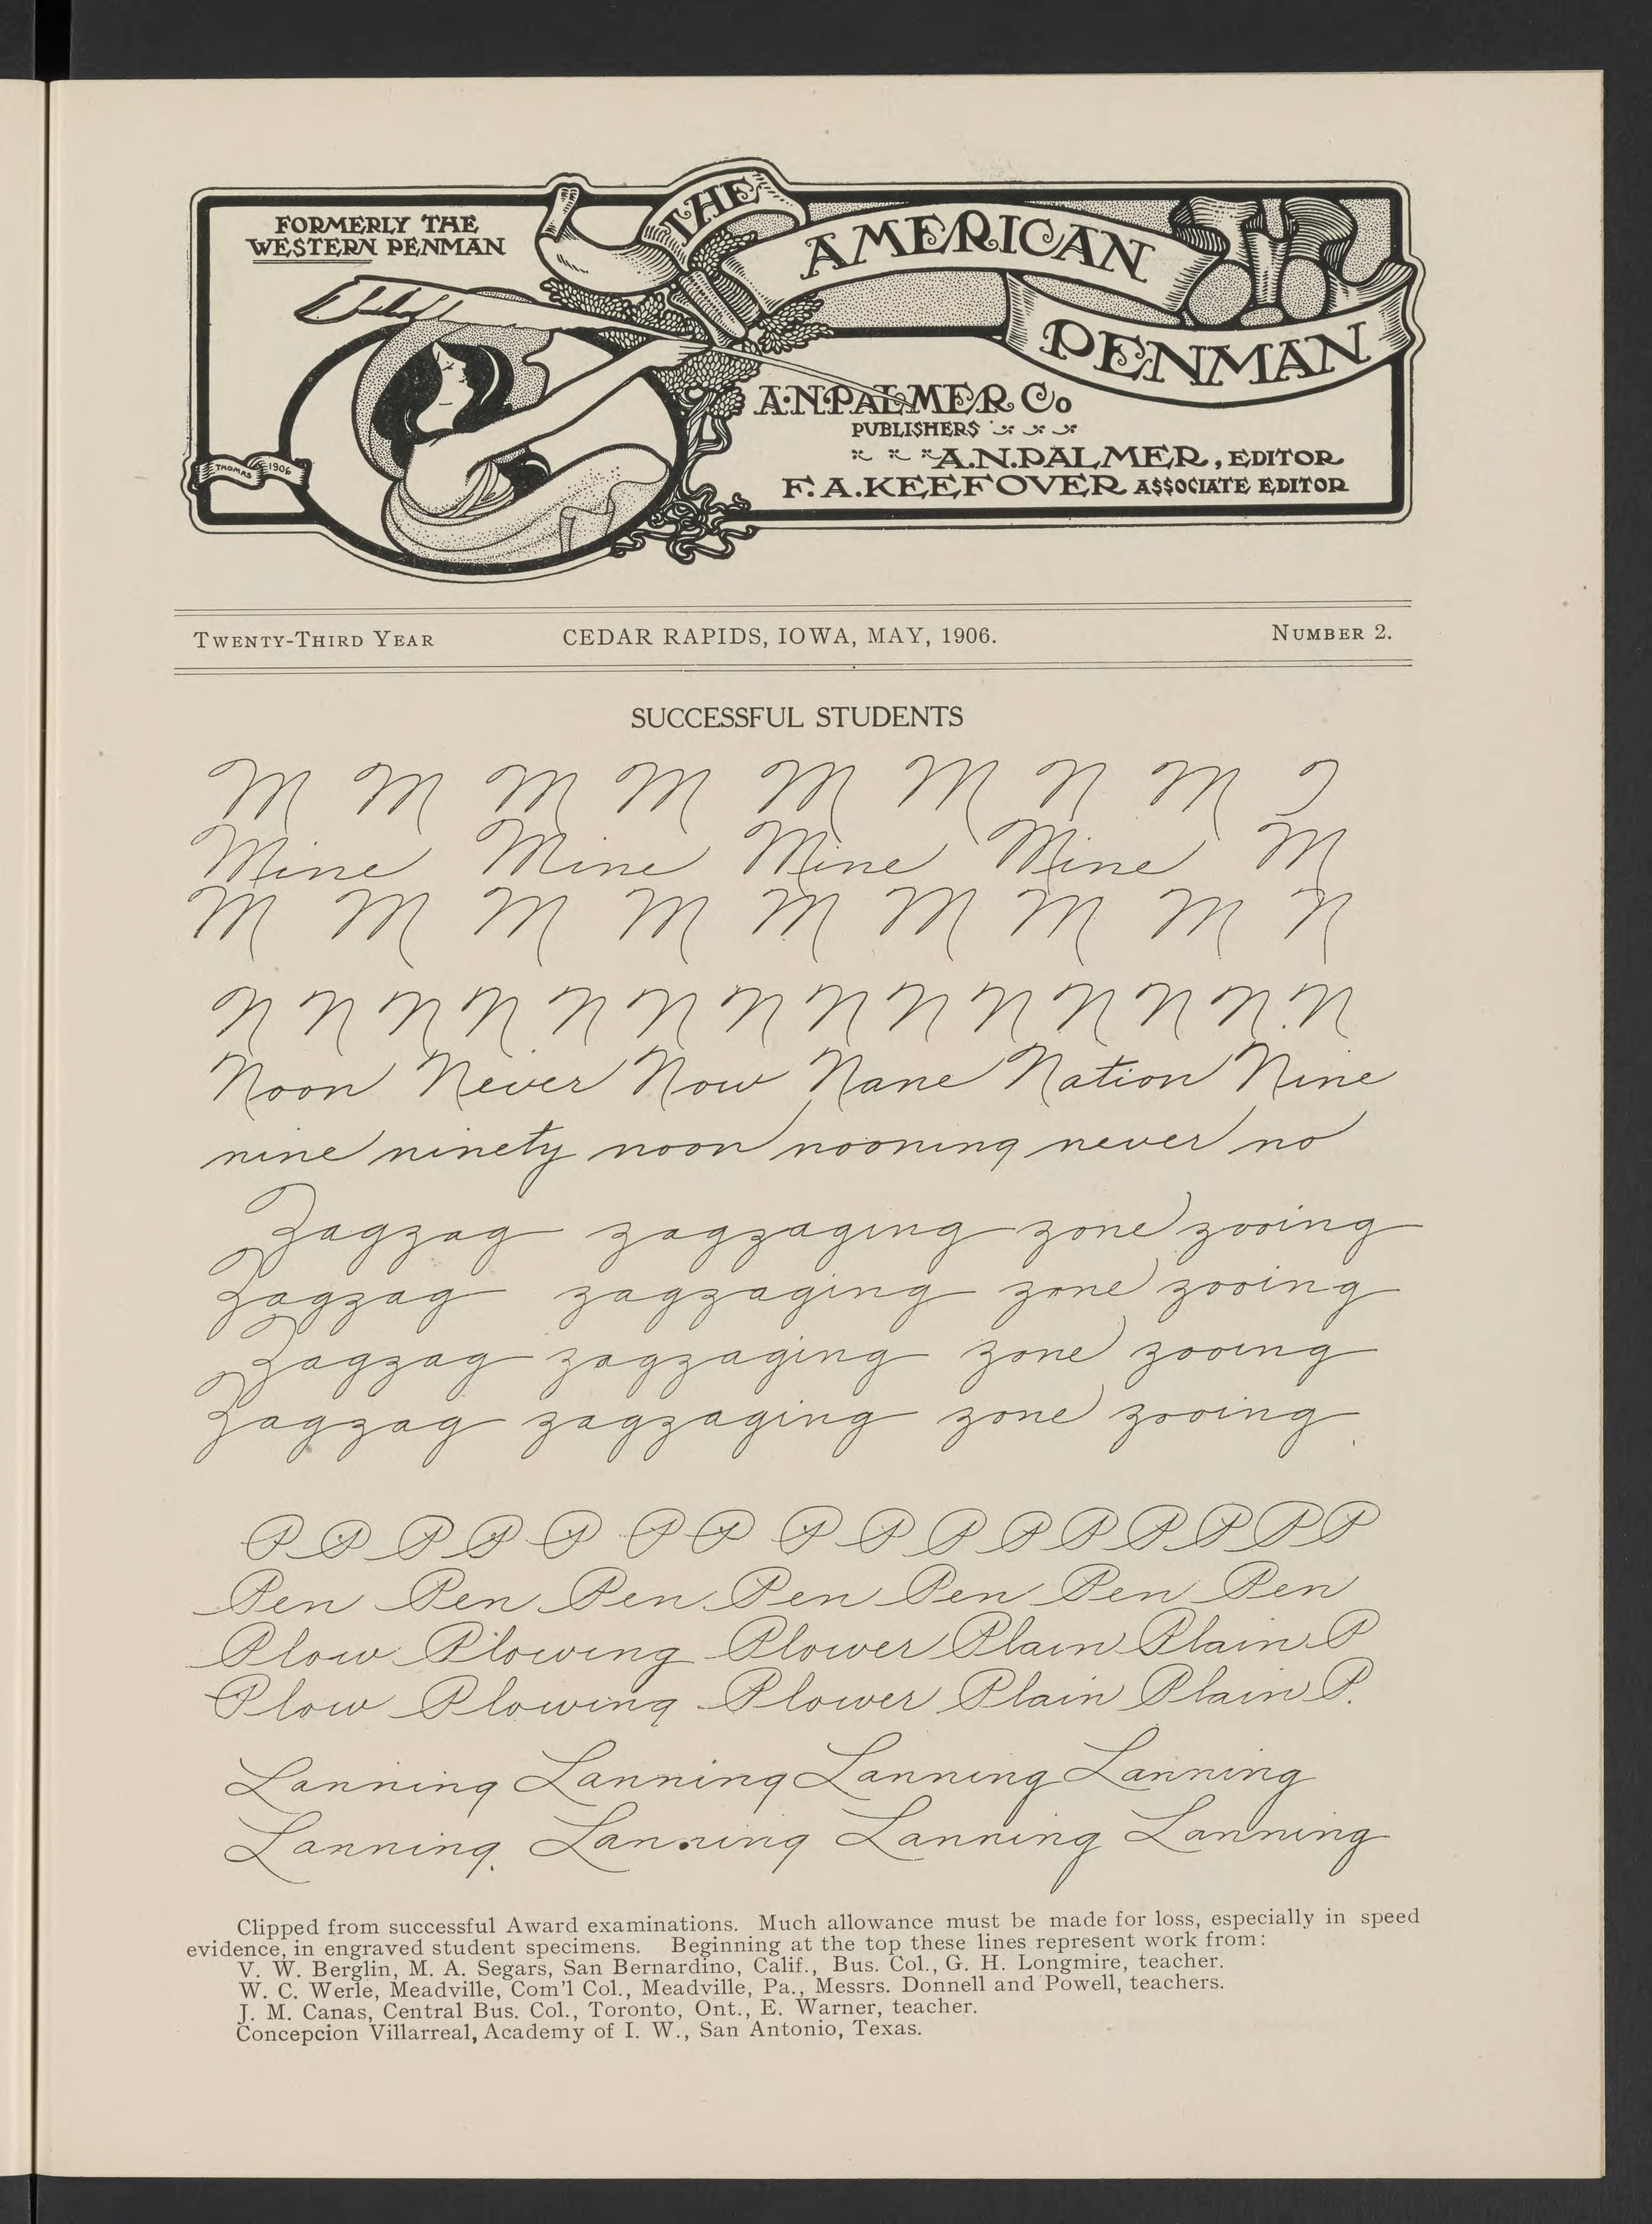 FORMERLY THE
WESTERN PENMAN
THE
AMERICAN
PENMAN
A.N. PALMER Co
PUBLISHERS
A.N. PALMER, EDITOR
F. A. KEEFOVER ASSOCIATE EDITOR
THOMAS 1906
TWENTY-THIRD YEAR CEDAR RAPIDS, IOWA, MAY, 1906. NUMBER 2.
SUCCESSFUL STUDENTS
M M M M M M N M
Mine Mine Mine Mine M
M M M M M M M M N
N N N N N N N N N N N N N N
Noon Never Now Nane Nation Nine
nine ninety noon nooning never no
Zagzag zagzaging zone zooing
Zagzag zagzaging zone zooing
Zagzag zagzaging zone zooing
Zagzag zagzaging zone zooing
P P P P P P P P P P P P P P P P
Pen Pen Pen Pen Pen Pen Pen
Plow Plowing Plower Plain Plain P
Plow Plowing Plower Plain Plain P.
Lanning Lanning Lanning Lanning
Lanning Lanning Lanning Lanning
Clipped from successful Award examinations. Much allowance must be made for loss, especially in speed
evidence, in engraved student specimens. Beginning at the top these lines represent work from:
V. W. Berglin, M. A. Segars, San Bernardino, Calif., Bus. Col., G. H. Longmire, teacher.
W. C. Werle, Meadville, Com'l Col., Meadville, Pa., Messrs. Donnell and Powell, teachers.
J. M. Canas, Central Bus. Col., Toronto, Ont., E. Warner, teacher.
Concepcion Villarreal, Academy of I. W., San Antonio, Texas.